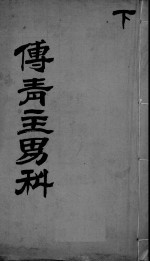 下
傅青主男科